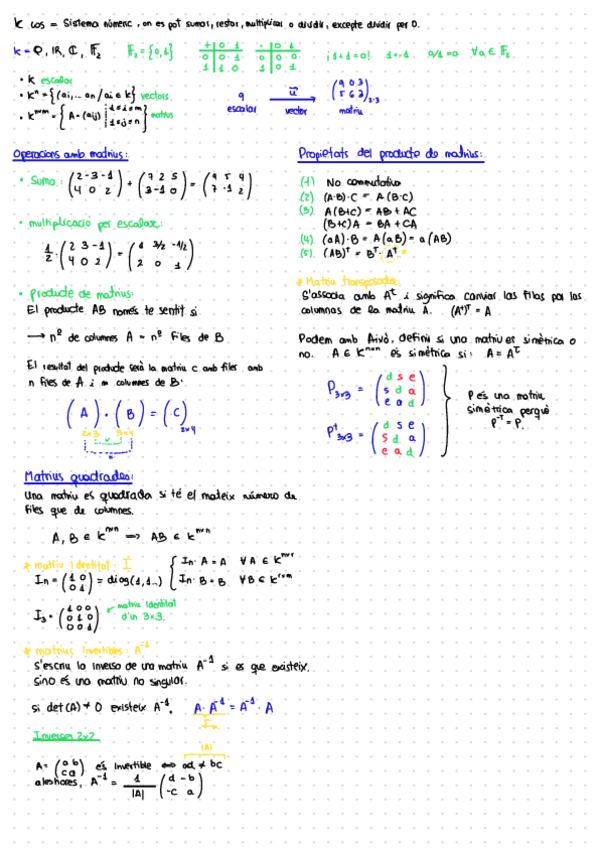 K cos = Sistema númeric, on es pot sumar, restar, multiplicar o dividir, excepte dividir per 0.
K = Q, IR, C, F₂ F₂ = {0,1} + 0 1 · 0 1 ¡1+1=0! 1=-1 a/1=a ∀a ∈ F₂
0 0 1 0 0 0
1 1 0 1 0 1
• K escalar
• Kⁿ = {(a₁,... an / ai ∈ K} vectors
• Kᵐˣⁿ = { A = (aij) | 1≤i≤m 1≤j≤n } matrius
q escalar → u vector → (9 0 3 / 5 6 2) 2×3 matriu
Operacions amb matrius:
• Suma: (2 -3 -1 / 4 0 2) + (7 2 5 / 3 -1 0) = (9 5 4 / 7 -1 2)
• multiplicació per escalar:
1/2 · (2 3 -1 / 4 0 2) = (1 3/2 -1/2 / 2 0 1)
• producte de matrius:
El producte AB només te sentit si
→ nº de columnes A = nº files de B
El resultat del producte serà la matriu C amb files amb
n files de A i m columnes de B:
(A) · (B) = (C) 2×4
2×3 3×4
Propietats del producte de matrius:
(1) No commutativa
(2) (A·B)·C = A(B·C)
(3) A(B+C) = AB + AC
(B+C)A = BA + CA
(4) (aA)·B = A(aB) = a(AB)
(5) (AB)ᵀ = Bᵀ · Aᵀ
* Matriu transposada:
S'associa amb Aᵗ i significa canviar las filas por las
columnas de la matriu A. (Aᵗ)ᵀ = A
Podem amb Això, definir si una matriu es simètrica o
no. A ∈ Kⁿˣⁿ és simétrica si: A = Aᵗ
P3×3 = (d s e / s d a / e a d)
Pᵗ3×3 = (d s e / s d a / e a d)
P és una matriu
simètrica perquè
Pᵀ = P.
Matrius quadrades:
Una matriu es quadrada si té el mateix número de
files que de columnes.
A, B ∈ Kⁿˣⁿ ⟹ AB ∈ Kⁿˣⁿ
* matriu Identitat: I
In = (1 0 / 0 1) = diag(1,1..) { In · A = A ∀A ∈ Kⁿˣʳ
In · B = B ∀B ∈ Kⁿˣᵐ
I₃ = (1 0 0 / 0 1 0 / 0 0 1) ← matriu Identitat
d'un 3×3.
* matrius invertibles: A⁻¹
S'escriu la inversa de una matriu A⁻¹ si es que existeix.
sino es una matriu no singular.
si det(A) ≠ 0 existeix A⁻¹. A · A⁻¹ = A⁻¹ · A
I
Inverses 2x2
|A|
A = (a b / c a) és invertible ⟺ ad ≠ bc
aleshores, A⁻¹ = 1/|A| (d -b / -c a)